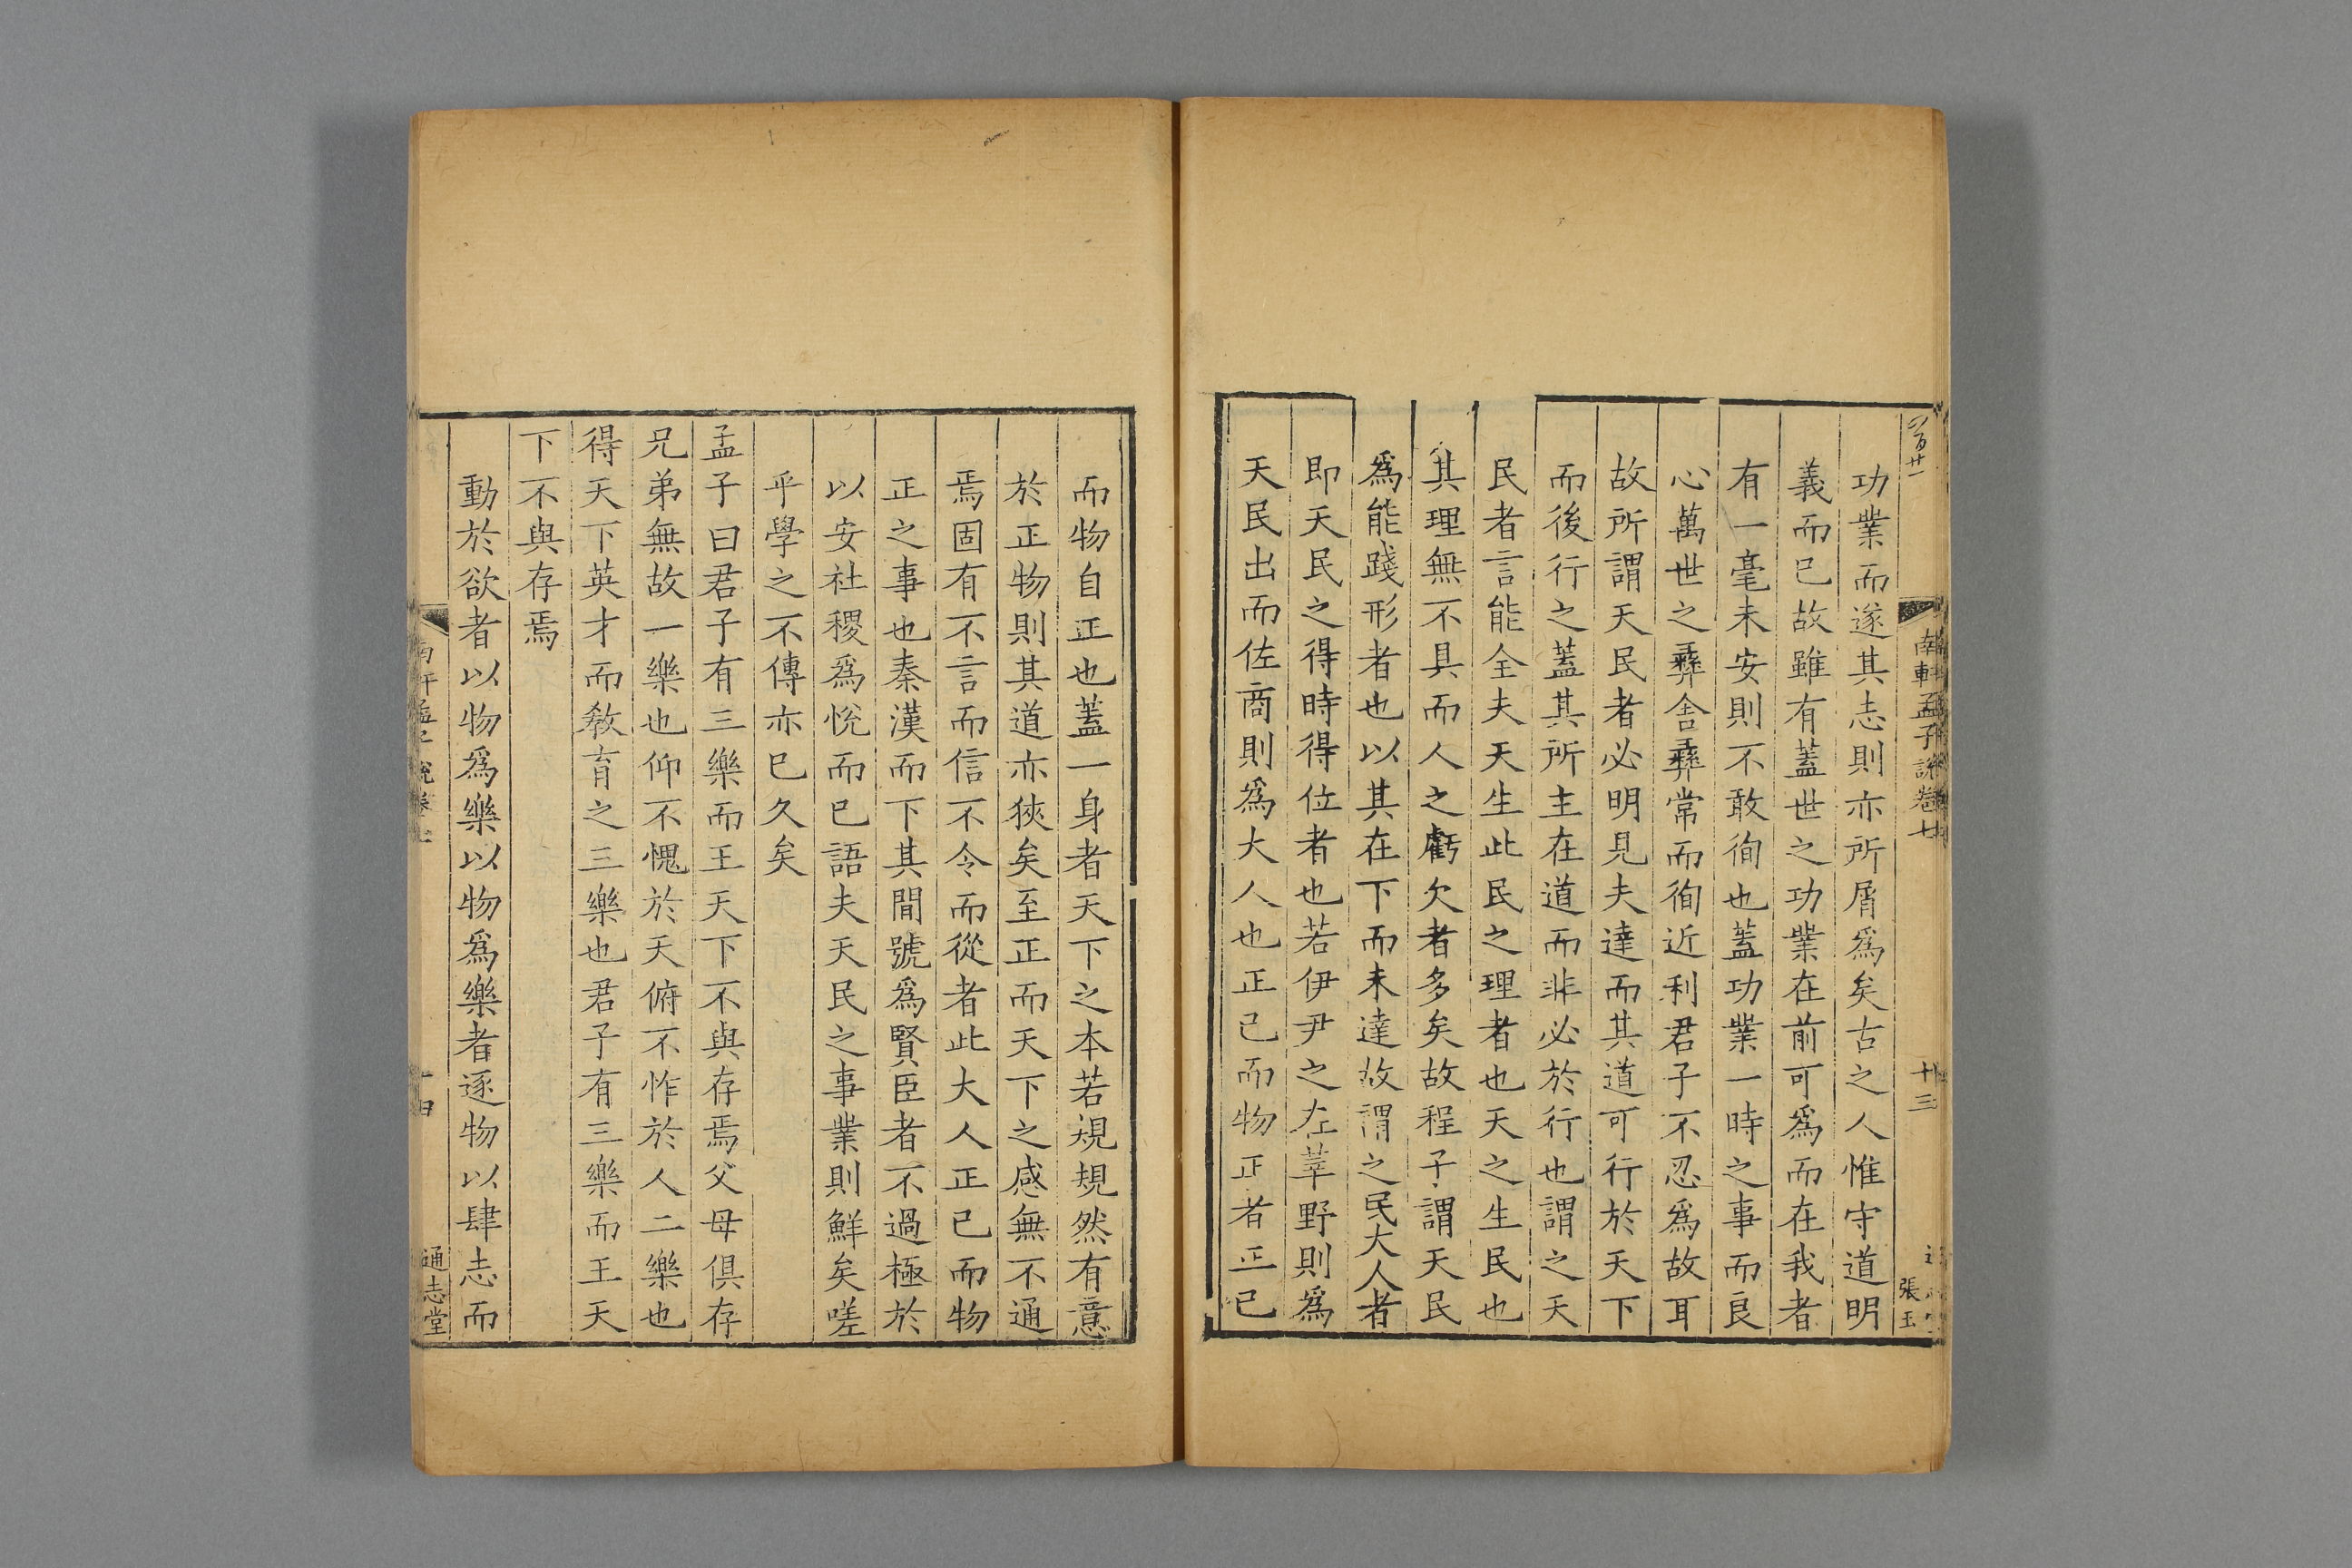 南軒孟子說卷七
十三
張玉
功業而遂其志則亦所屑爲矣古之人惟守道明
義而已故雖有蓋世之功業在前可爲而在我者
有一毫未安則不敢徇也蓋功業一時之事而良
心萬世之彞舍彞常而徇近利君子不忍爲故耳
故所謂天民者必明見夫達而其道可行於天下
而後行之蓋其所主在道而非必於行也謂之天
民者言能全夫天生此民之理者也天之生民也
其理無不具而人之虧欠者多矣故程子謂天民
爲能踐形者也以其在下而未達故謂之民大人者
即天民之得時得位者也若伊尹之在莘野則爲
天民出而佐商則爲大人也正己而物正者正己
而物自正也蓋一身者天下之本若規規然有意
於正物則其道亦狹矣至正而天下之感無不通
焉固有不言而信不令而從者此大人正己而物
正之事也秦漢而下其間號爲賢臣者不過極於
以安社稷爲悅而已語夫天民之事業則鮮矣嗟
乎學之不傳亦已久矣
孟子曰君子有三樂而王天下不與存焉父母俱存
兄弟無故一樂也仰不愧於天俯不怍於人二樂也
得天下英才而敎育之三樂也君子有三樂而王天
下不與存焉
動於欲者以物爲樂以物爲樂者逐物以肆志而
通志堂